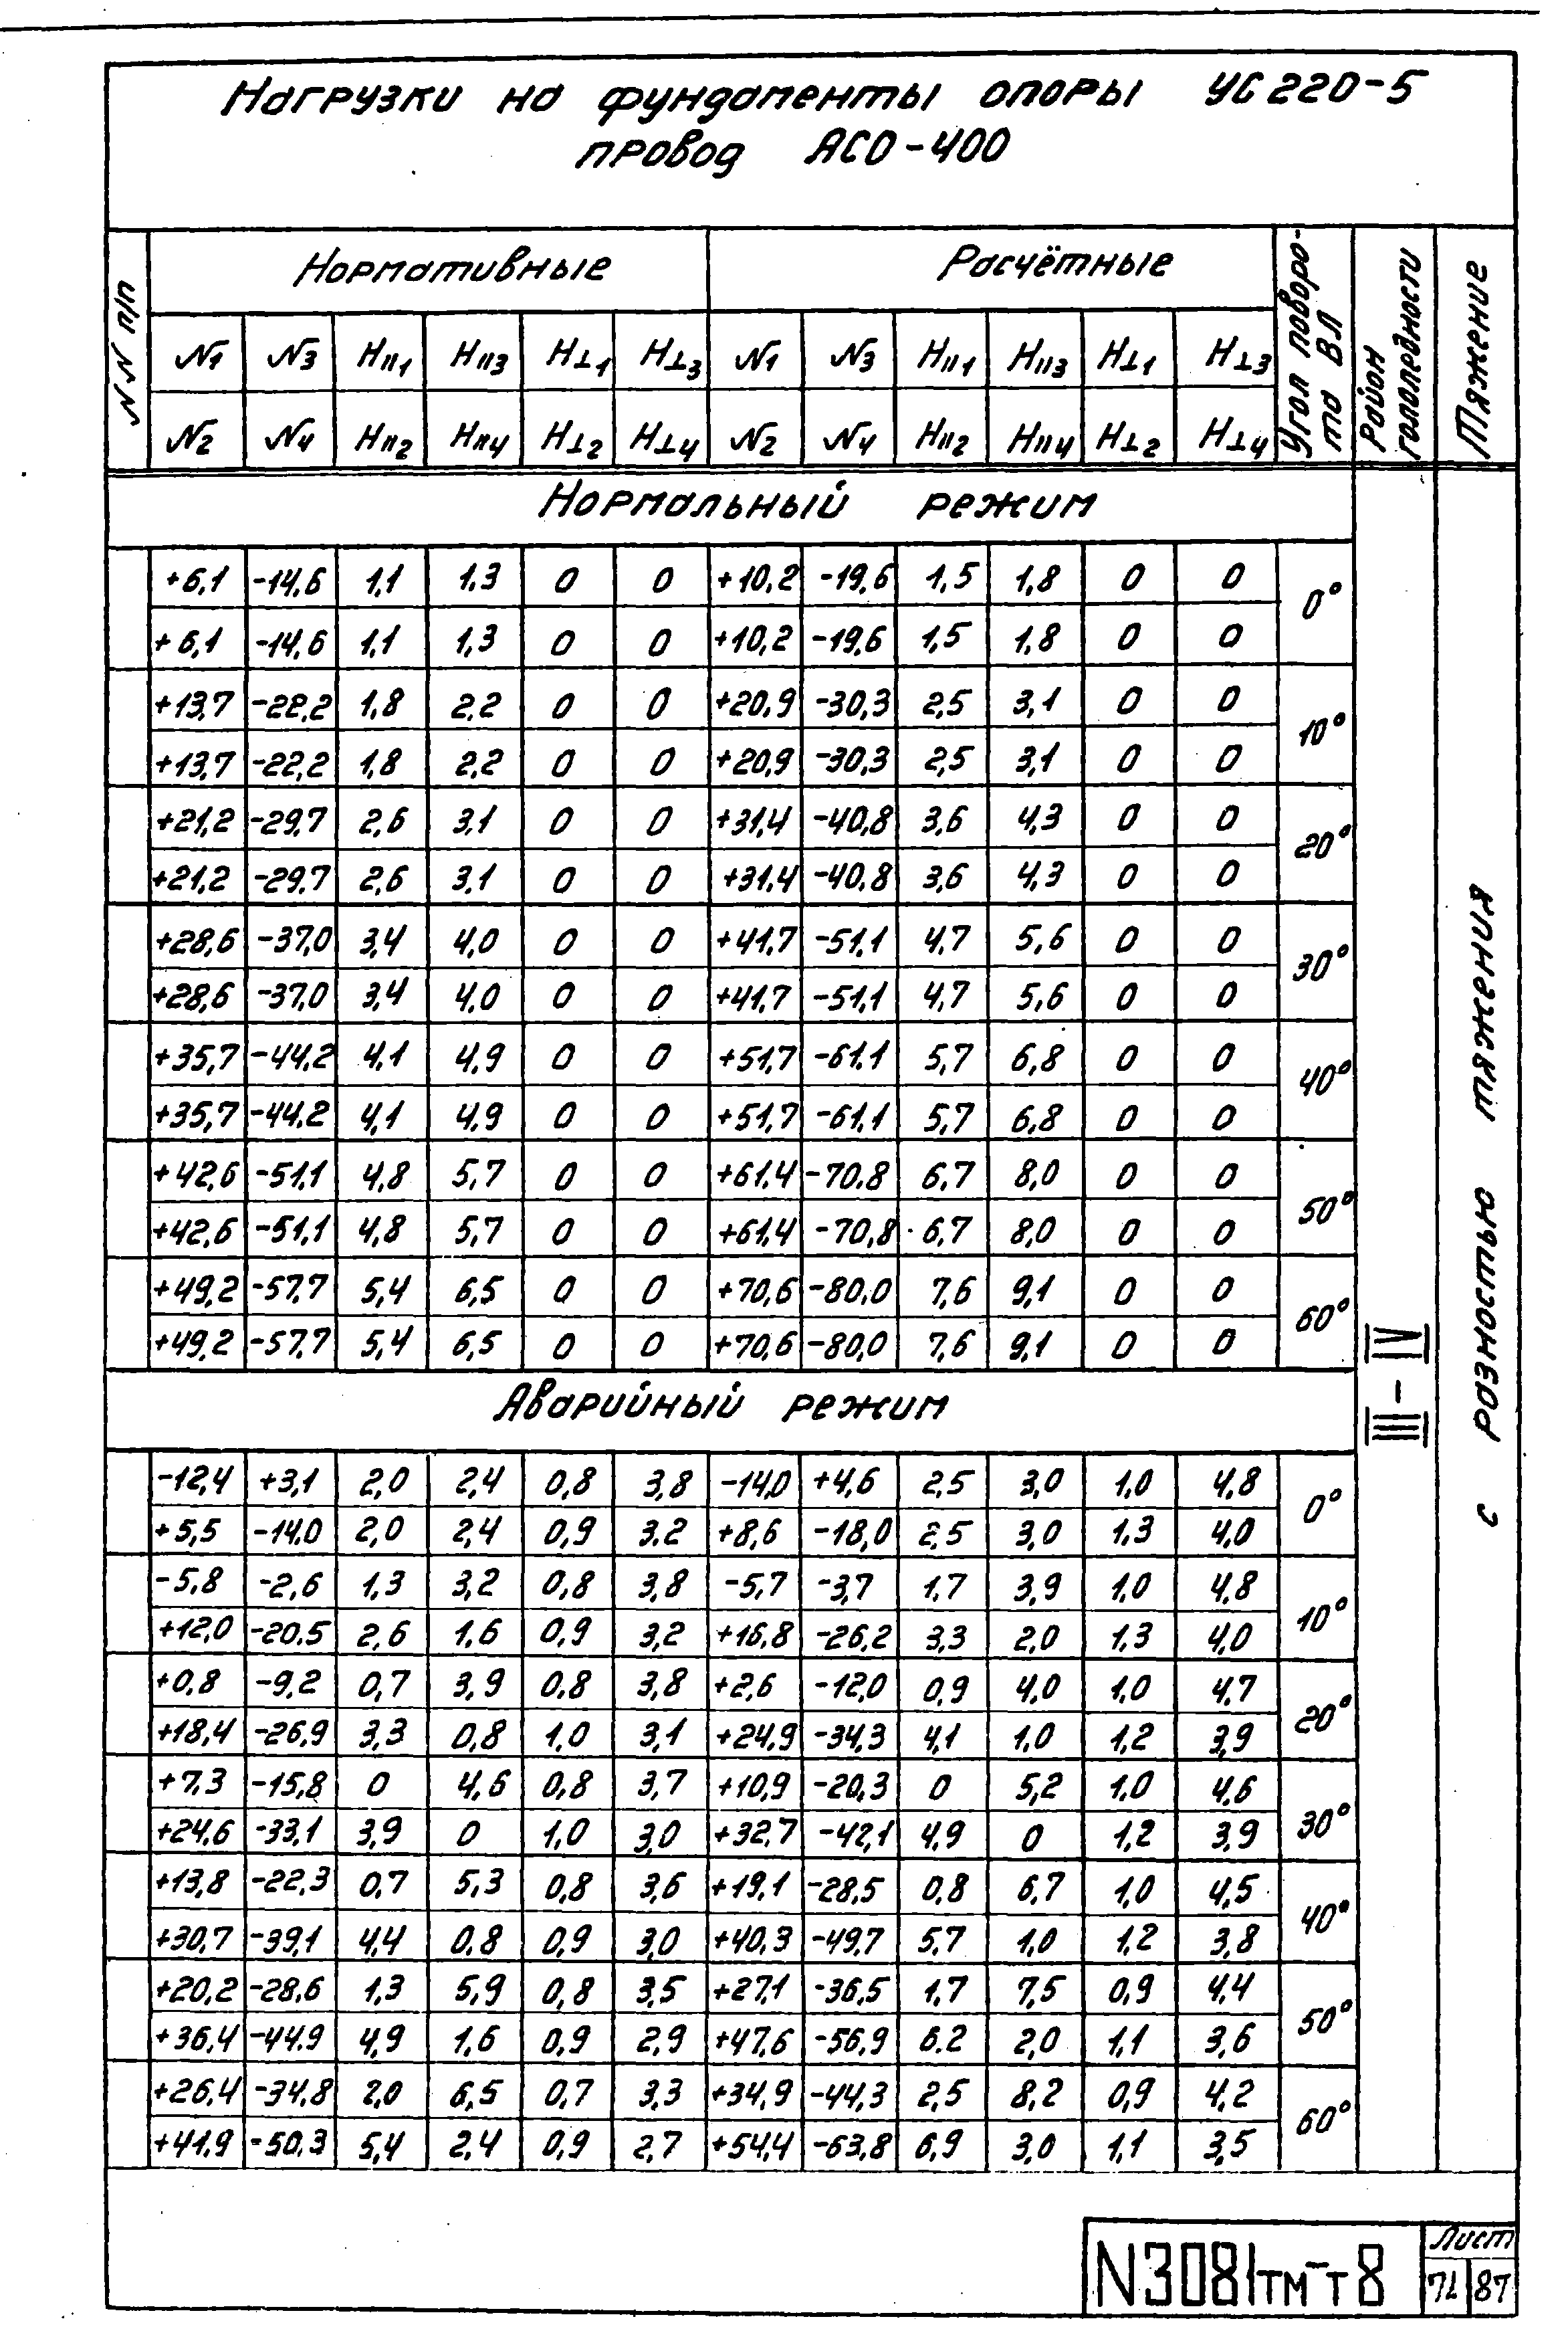 Нагрузки на фундаменты опоры УС220-5
провод АСО-400
NN п/п
Нормативные
Расчётные
Угол поворо-
та ВЛ
Район
гололедности
Тяжение
N1 N3 H||1 H||3 H⊥1 H⊥3 N1 N3 H||1 H||3 H⊥1 H⊥3
N2 N4 H||2 H||4 H⊥2 H⊥4 N2 N4 H||2 H||4 H⊥2 H⊥4
Нормальный режим
+6,1 -14,6 1,1 1,3 0 0 +10,2 -19,6 1,5 1,8 0 0
0°
+6,1 -14,6 1,1 1,3 0 0 +10,2 -19,6 1,5 1,8 0 0
+13,7 -22,2 1,8 2,2 0 0 +20,9 -30,3 2,5 3,1 0 0
10°
+13,7 -22,2 1,8 2,2 0 0 +20,9 -30,3 2,5 3,1 0 0
+21,2 -29,7 2,6 3,1 0 0 +31,4 -40,8 3,6 4,3 0 0
20°
+21,2 -29,7 2,6 3,1 0 0 +31,4 -40,8 3,6 4,3 0 0
+28,6 -37,0 3,4 4,0 0 0 +41,7 -51,1 4,7 5,6 0 0
30°
+28,6 -37,0 3,4 4,0 0 0 +41,7 -51,1 4,7 5,6 0 0
+35,7 -44,2 4,1 4,9 0 0 +51,7 -61,1 5,7 6,8 0 0
40°
+35,7 -44,2 4,1 4,9 0 0 +51,7 -61,1 5,7 6,8 0 0
+42,6 -51,1 4,8 5,7 0 0 +61,4 -70,8 6,7 8,0 0 0
50°
+42,6 -51,1 4,8 5,7 0 0 +61,4 -70,8 6,7 8,0 0 0
+49,2 -57,7 5,4 6,5 0 0 +70,6 -80,0 7,6 9,1 0 0
60°
+49,2 -57,7 5,4 6,5 0 0 +70,6 -80,0 7,6 9,1 0 0
III - IV
с разностью тяжения
Аварийный режим
-12,4 +3,1 2,0 2,4 0,8 3,8 -14,0 +4,6 2,5 3,0 1,0 4,8
0°
+5,5 -14,0 2,0 2,4 0,9 3,2 +8,6 -18,0 2,5 3,0 1,3 4,0
-5,8 -2,6 1,3 3,2 0,8 3,8 -5,7 -3,7 1,7 3,9 1,0 4,8
10°
+12,0 -20,5 2,6 1,6 0,9 3,2 +16,8 -26,2 3,3 2,0 1,3 4,0
+0,8 -9,2 0,7 3,9 0,8 3,8 +2,6 -12,0 0,9 4,0 1,0 4,7
20°
+18,4 -26,9 3,3 0,8 1,0 3,1 +24,9 -34,3 4,1 1,0 1,2 3,9
+7,3 -15,8 0 4,6 0,8 3,7 +10,9 -20,3 0 5,2 1,0 4,6
30°
+24,6 -33,1 3,9 0 1,0 3,0 +32,7 -42,1 4,9 0 1,2 3,9
+13,8 -22,3 0,7 5,3 0,8 3,6 +19,1 -28,5 0,8 6,7 1,0 4,5
40°
+30,7 -39,1 4,4 0,8 0,9 3,0 +40,3 -49,7 5,7 1,0 1,2 3,8
+20,2 -28,6 1,3 5,9 0,8 3,5 +27,1 -36,5 1,7 7,5 0,9 4,4
50°
+36,4 -44,9 4,9 1,6 0,9 2,9 +47,6 -56,9 6,2 2,0 1,1 3,6
+26,4 -34,8 2,0 6,5 0,7 3,3 +34,9 -44,3 2,5 8,2 0,9 4,2
60°
+41,9 -50,3 5,4 2,4 0,9 2,7 +54,4 -63,8 6,9 3,0 1,1 3,5
N3081тм-т8
Лист
71 87